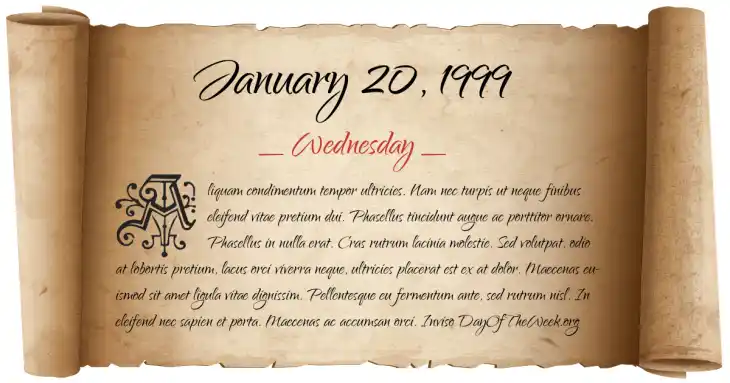 January 20, 1999
— Wednesday —
Aliquam condimentum tempor ultricies. Nam nec turpis ut neque finibus
eleifend vitae pretium dui. Phasellus tincidunt augue ac porttitor ornare.
Phasellus in nulla erat. Cras rutrum lacinia molestie. Sed volutpat, odio
at lobortis pretium, lacus orci viverra neque, ultricies placerat est ex at dolor. Maecenas eu-
ismod sit amet ligula vitae dignissim. Pellentesque eu fermentum ante, sed rutrum nisl. In
eleifend nec sapien et porta. Maecenas ac accumsan orci. Inviso DayOfTheWeek.org